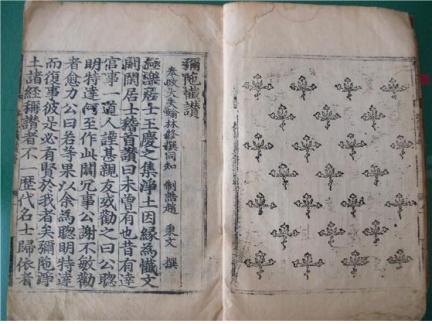 彌陀懺讃
奉政大夫翰林修撰同知 制誥趙 秉文 撰
極樂居士王慶之集淨土因緣為懺文
閑閑居士稽首讃曰未曾有也昔有達
官事一道人謹甚親友或勸之曰公聰
明特達何至作此閑冗事公謝不敏勸
者愈力公曰若等果以余為聰明特達
而復事彼是必有賢於我者矣彌陀淨
土諸經稱讃者不一歷代名士歸依者